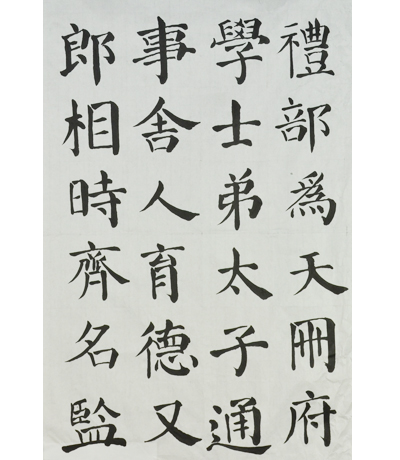 禮部為天冊府
學士弟太子通
事舍人育德又
郎相時齊名監